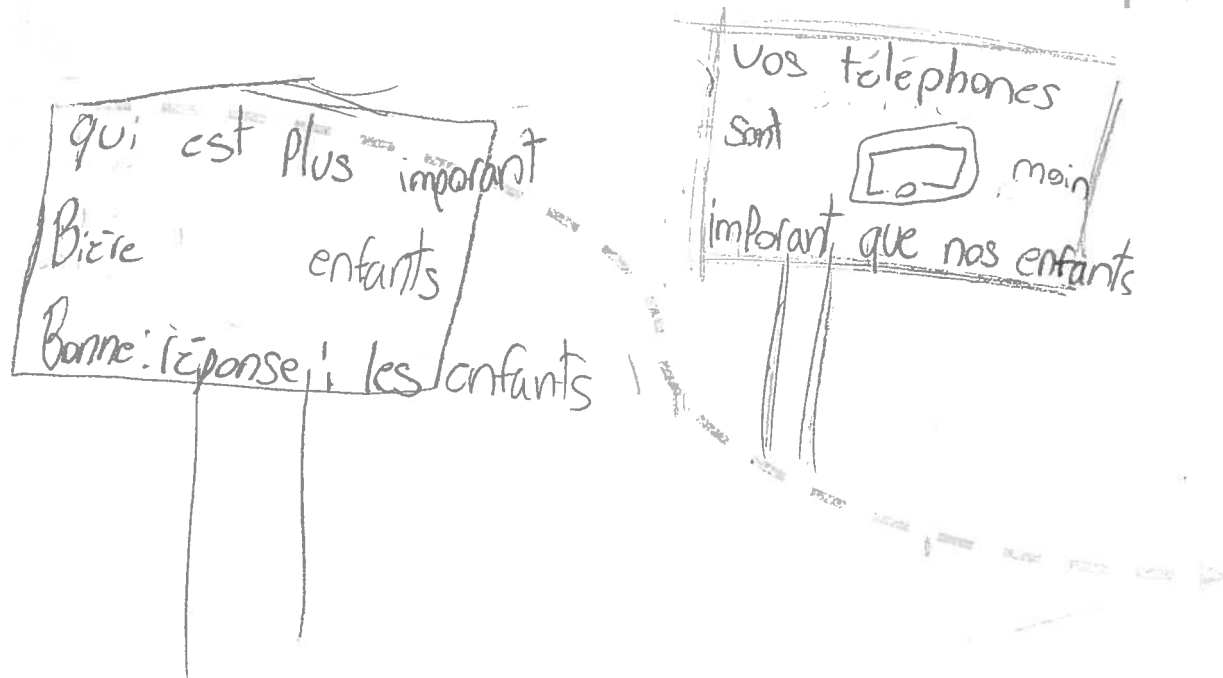 qui est Plus imporant
Bière enfants
Bonne: réponse : les enfants
Vos téléphones
sont moin
imPorant que nos enfants